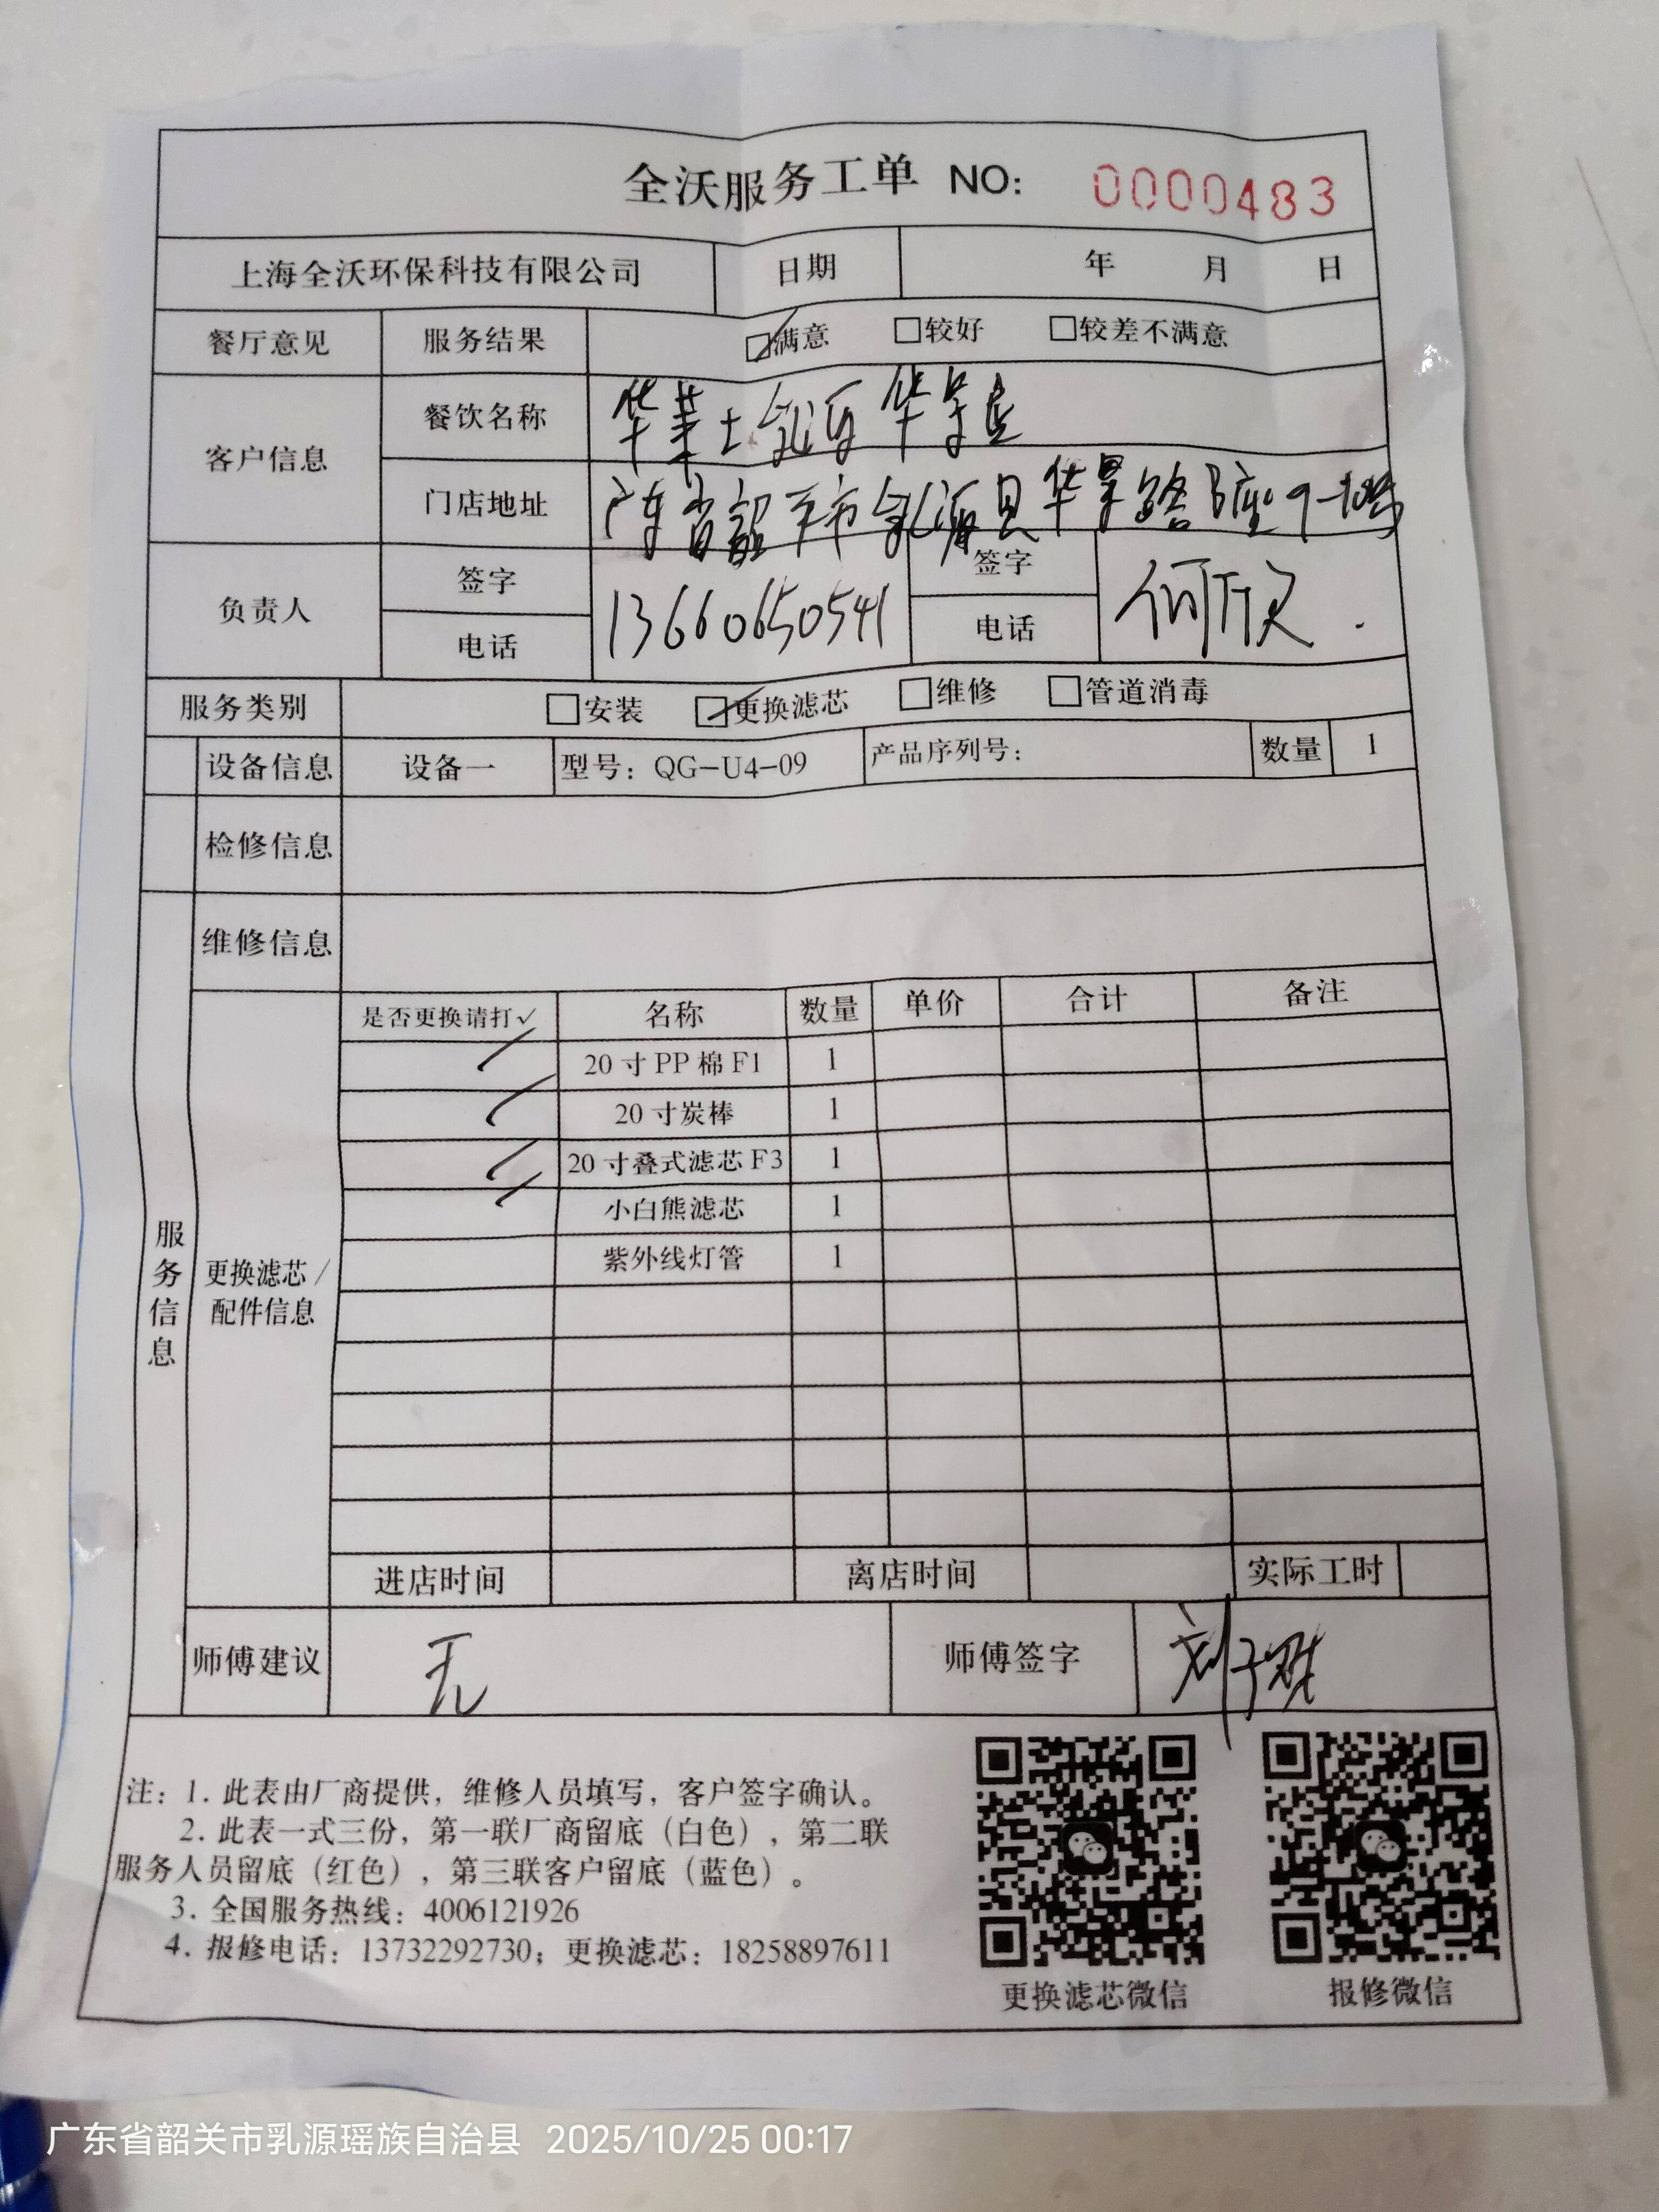 全沃服务工单 NO: 0000483
上海全沃环保科技有限公司 日期 年 月 日
餐厅意见 服务结果 ☑满意 □较好 □较差不满意
客户信息 餐饮名称 华莱士乳源华景店
门店地址 广东省韶关市乳源县华景路B座9-10号
负责人 签字 签字
电话 13660650541 电话 何欣
服务类别 □安装 ☑更换滤芯 □维修 □管道消毒
设备信息 设备一 型号：QG-U4-09 产品序列号： 数量 1
检修信息
维修信息
服务信息
更换滤芯/
配件信息
是否更换请打✓ 名称 数量 单价 合计 备注
✓ 20寸PP棉F1 1
✓ 20寸炭棒 1
✓ 20寸叠式滤芯F3 1
✓ 小白熊滤芯 1
紫外线灯管 1
进店时间 离店时间 实际工时
师傅建议 无 师傅签字 刘子
注：1. 此表由厂商提供，维修人员填写，客户签字确认。
2. 此表一式三份，第一联厂商留底（白色），第二联
服务人员留底（红色），第三联客户留底（蓝色）。
3. 全国服务热线：4006121926
4. 报修电话：13732292730；更换滤芯：18258897611
更换滤芯微信 报修微信
广东省韶关市乳源瑶族自治县 2025/10/25 00:17